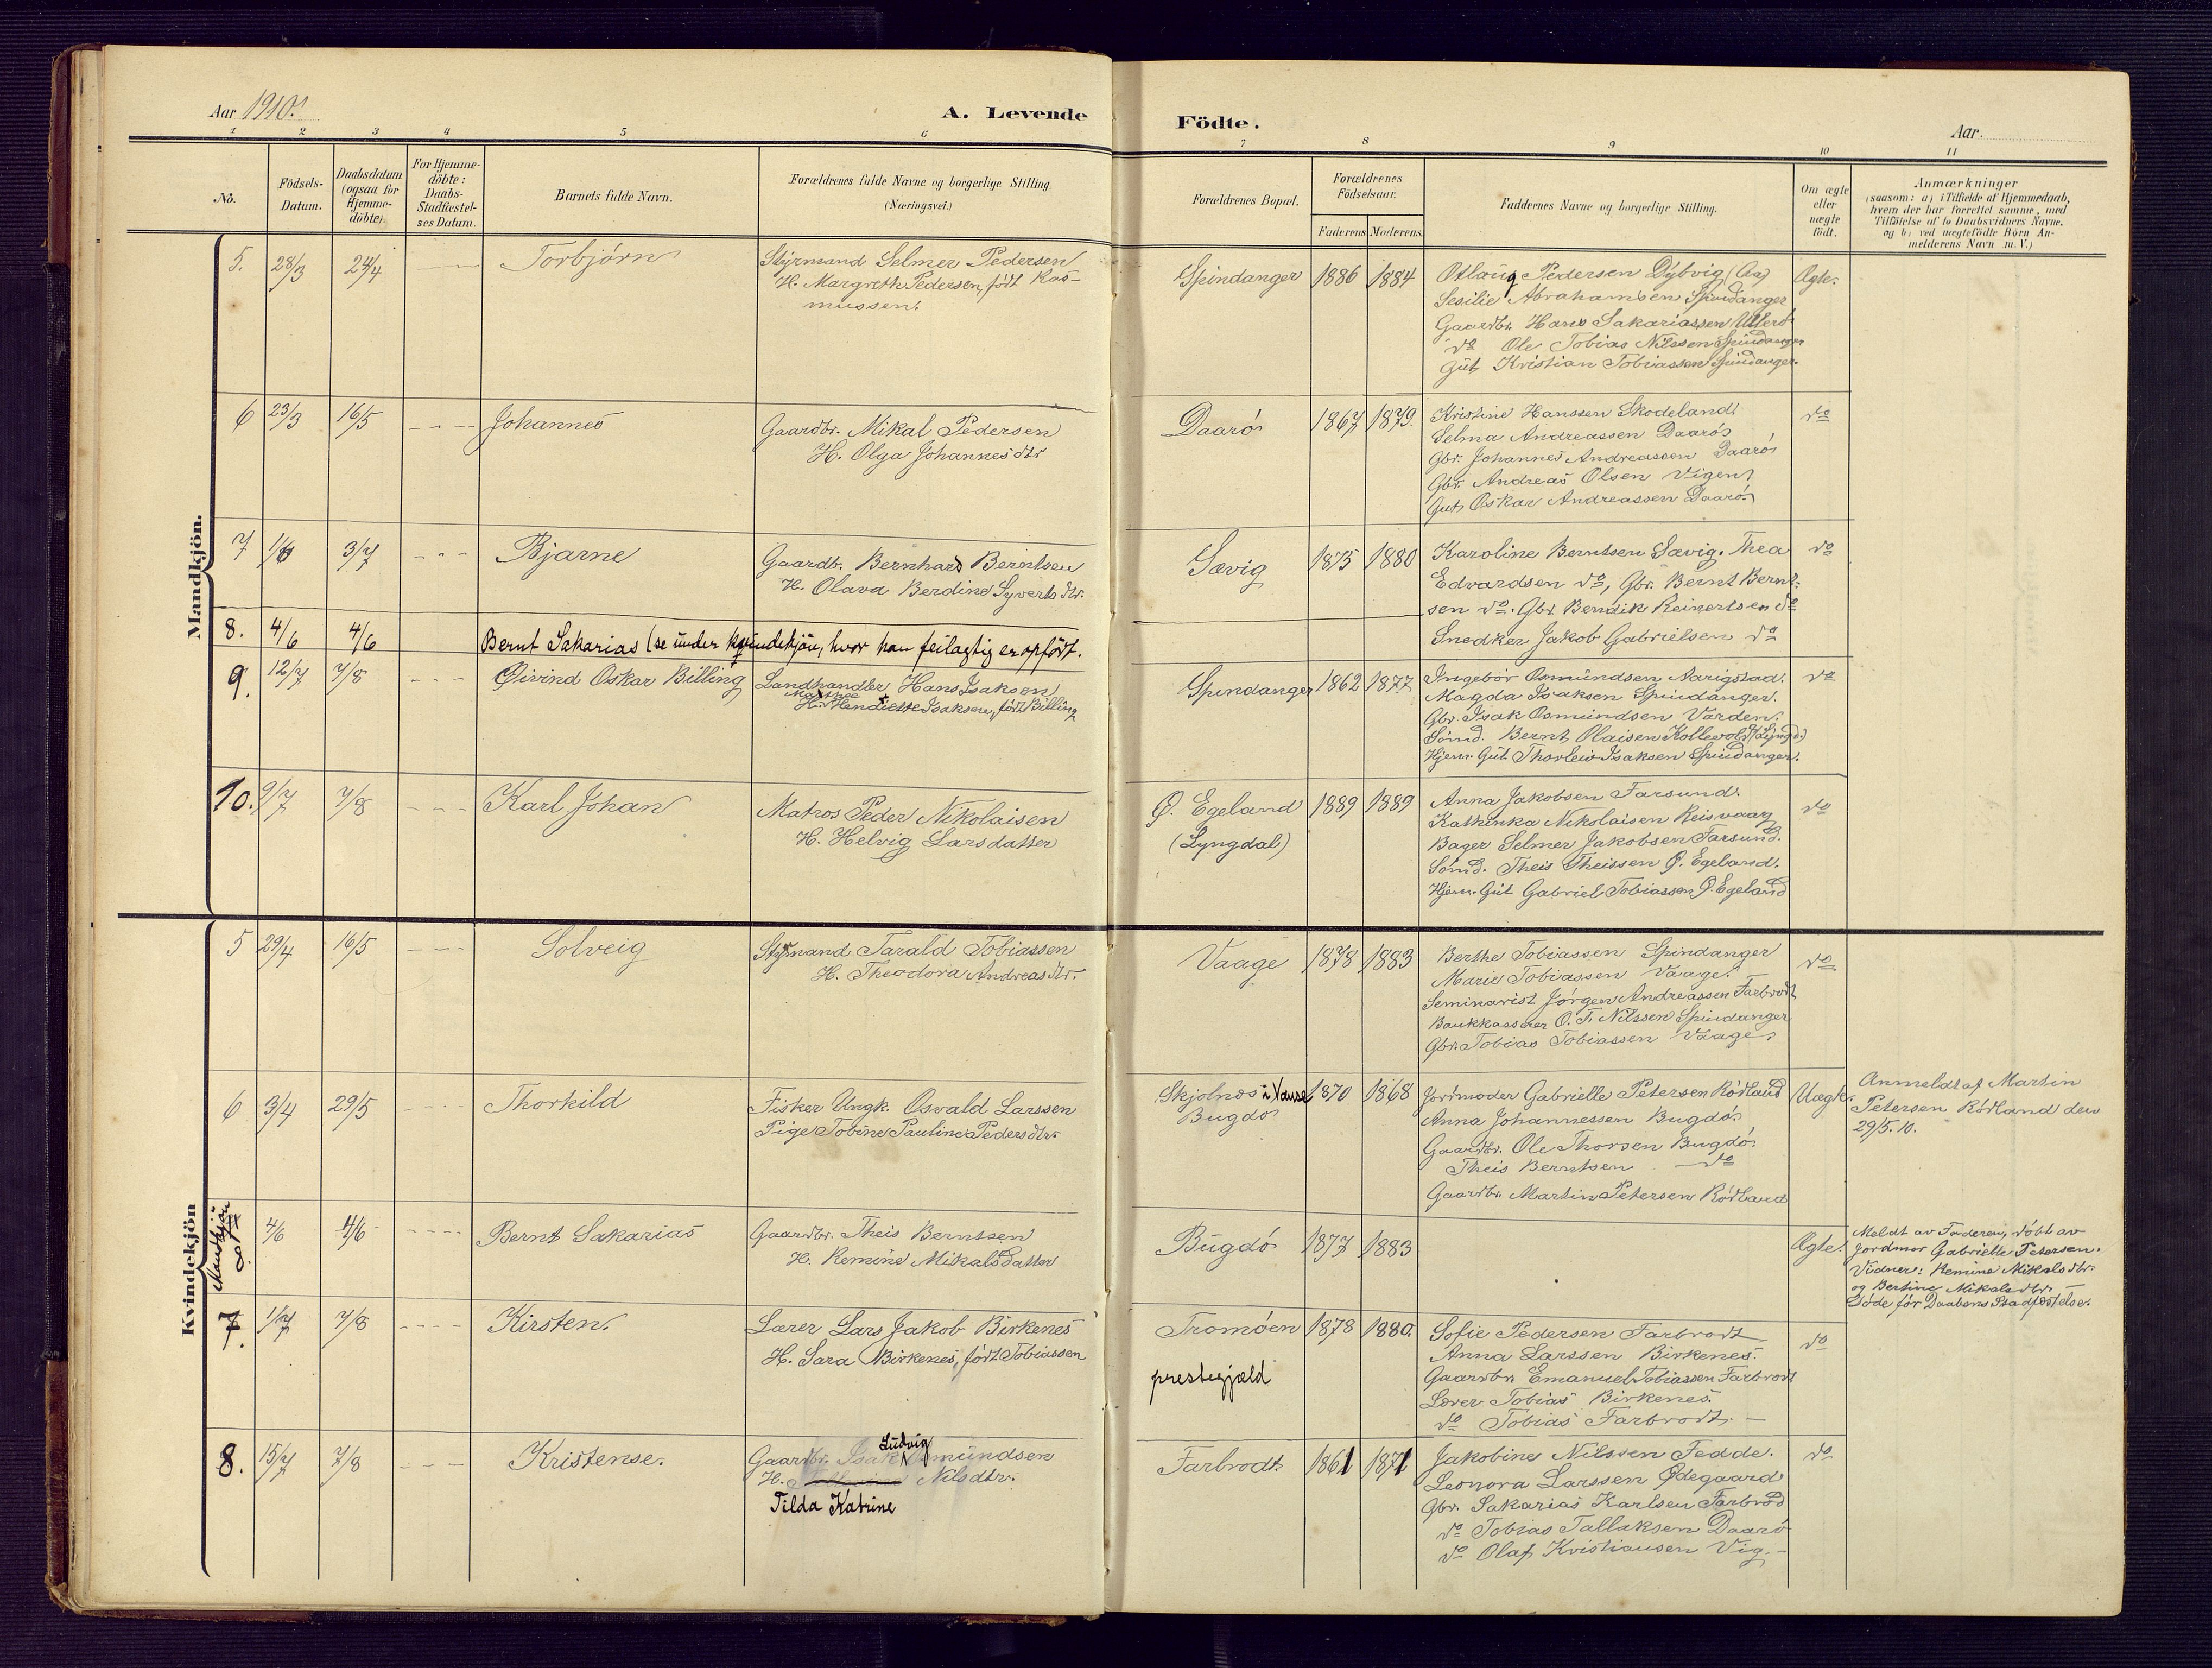 Aar 1910.
A. Levende
Födte.
Aar.
1 2 3 4 5 6 7 8 9 10 11
No.
Födsels-
Datum.
Daabsdatum
(ogsaa for
Hjemme-
döbte).
For Hjemme-
döbte:
Daabs-
Stadfæstel-
ses Datum.
Barnets fulde Navn.
Forældrenes fulde Navne og borgerlige Stilling.
(Næringsvei.)
Forældrenes Bopæl.
Forældrenes
Födselsaar.
Faderens. Moderens.
Faddernes Navne og borgerlige Stilling.
Om ægte
eller
uægte
födt.
Anmærkninger
(saasom: a) i Tilfælde af Hjemmedaab,
hvem der har forrettet samme, med
Tilföielse af to Daabsvidners Navne.
og b) ved uægtefödte Börn An-
melderens Navn m. V.)
Mandkjön.
5. 28/3 24/4 Torbjörn
Styrmand Selmer Pedersen
H. Margreth Pedersen, født Ras-
mussen.
Spindanger 1886 1884
Otlaug Pedersen Dybvig (Aa)
Sesilie Abrahamsen Spindanger
Gaardbr. Hans Sakariassen Ullerö
do Ole Tobias Nilssen Spindanger
Gut Kristian Tobiassen Spindanger.
Ægte.
6 23/3 16/5 Johannes
Gaardbr. Mikal Pedersen
H. Olga Johannesdtr
Daarö 1867 1879.
Kristine Hanssen Skodeland.
Selma Andreassen Daarö
Gbr. Johannes Andreassen Daarö
Gbr. Andreas Olsen Vigen
Gut Oskar Andreassen Daarö
do
7 1/6 3/7 Bjarne
Gaardb. Bernhard Berntsen
H. Olava Berdine Syvertsdtr.
Sævig 1875 1880
Karoline Berntsen Sævig. Thea
Edvardsen do, Gbr. Bernt Bernt-
sen do. Gbr. Bendik Reinertsen do
Snedker Jakob Gabrielsen do
do
8. 4/6 4/6 Bernt Sakarias (se under kvindekjön, hvor han feilagtig er opfört.
9. 12/7 7/8 Øivind Oskar Billing
Landhandler Hans Isaksen
H. Henriette Isaksen, født Billing
Spindanger 1862 1877
Ingebor Osmundsen Aarigstad.
Magda Isaksen Spindanger.
Gbr. Isak Osmundsen Varden.
Sömd. Bernt Olaisen Kollevold (Lyngd.)
Hjem. Gut Thorleiv Isaksen Spindanger.
do
10. 9/7 7/8 Karl Johan
Matros Peder Nikolaisen
H. Helvig Larsdatter
Ø. Egeland
(Lyngdal)
1889 1889
Anna Jakobsen Farsund.
Kathinka Nikolaisen Reisvaag
Bager Selmer Jakobsen Farsund.
Sömd. Theis Theissen Ø. Egeland.
Hjem. Gut Gabriel Tobiassen Ø. Egeland
do
Kvindekjön
5 29/4 16/5 Solveig
Styrmand Tarald Tobiassen
H. Theodora Andreasdtr.
Vaage 1878 1883
Berthe Tobiassen Spindanger
Marie Tobiassen Vaage.
Seminarist Jörgen Andreassen Farbrodt
Bankkasserer O. T. Nilssen Spindanger
Gbr. Tobias Tobiassen Vaage.
do
6 3/4 29/5 Thorkild
Fisker Ungk. Osvald Larssen
Pige Tobine Pauline Pedersdtr.
Skjolnes i Vanse
Bugdö
1870 1868
Jordmoder Gabrielle Petersen Rödland
Anna Johannessen Bugdö.
Gaardbr. Ole Thorsen Bugdö.
Theis Berntsen do
Gaardbr. Martin Petersen Rödland
Uægte.
Anmeldt af Martin
Petersen Rödland den
29/5. 10.
Mandkjön
8 4/6 4/6 Bernt Sakarias
Gaardbr. Theis Berntsen
H. Remine Mikalsdatter
Bugdö 1877 1883
Ægte.
Meldt av Faderen, döbt av
Jordmor Gabrielle Petersen.
Vidner: Remine Mikalsdtr.
og Bertine Mikalsdtr.
Döde før Daabens Stadfæstelse.
7. 1/7 7/8 Kirsten.
Lærer Lars Jakob Birkenes
H. Sara Birkenes, født Tobiassen
Tromöen
prestegjæld
1878 1880.
Sofie Pedersen Farbrodt
Anna Larssen Birkenes.
Gaardbr. Emanuel Tobiassen Farbrodt
Lærer Tobias Birkenes.
do Tobias Farbrodt.
do
8. 15/7 7/8 Kristense.
Ludvig
Gaardbr. Isak Osmundsen
H. Nilsdtr.
Tilda Katrine
Farbrodt 1861 1871
Jakobine Nilssen Fedde.
Leonora Larssen Ødegaard
Gbr. Sakarias Karlsen Farbrod
do Tobias Tallaksen Daarö
do Olaf Kristiansen Vig.
do